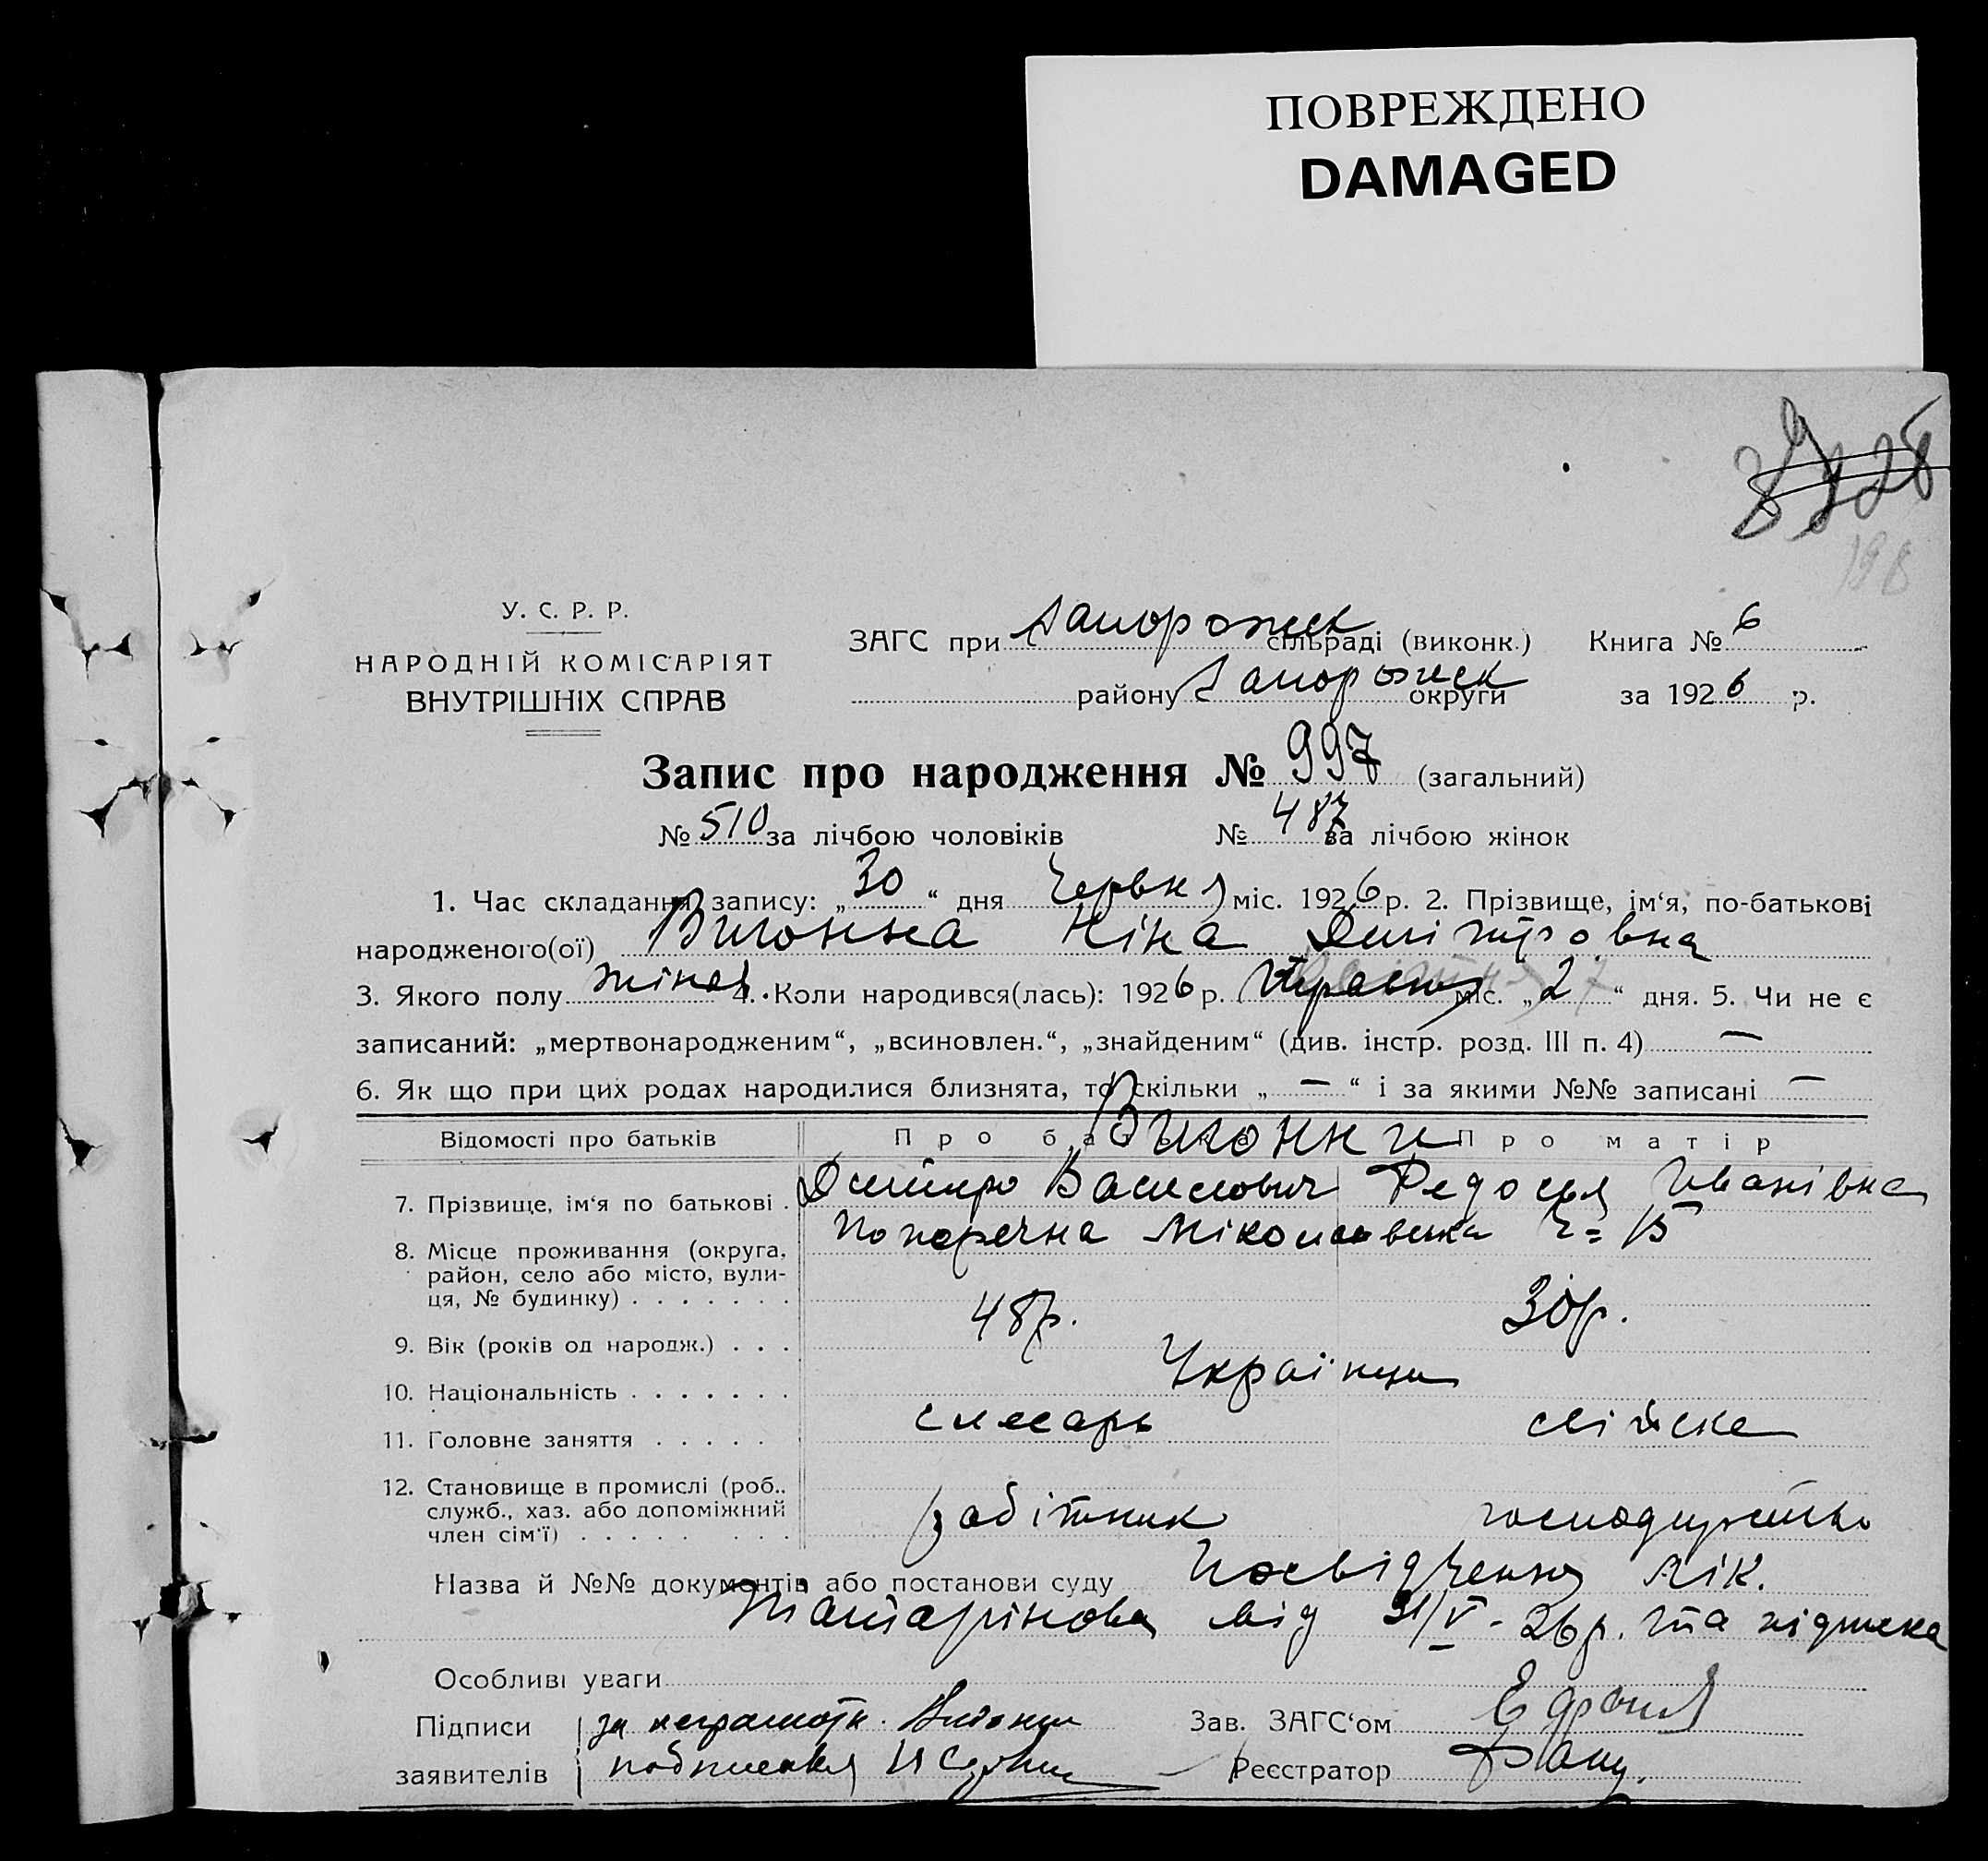 ПОВРЕЖДЕНО
DAMAGED
198
У. С. Р. Р.
НАРОДНІЙ КОМІСАРІЯТ
ВНУТРІШНІХ СПРАВ
ЗАГС при Запорожск сільраді (виконк.) Книга № 6
району Запорожск округи за 1926 р.
Запис про народження № 997 (загальний)
№ 510 за лічбою чоловіків № 487 за лічбою жінок
1. Час складання запису: „30“ дня Червня міс. 1926 р. 2. Прізвище, ім‘я, по-батькові
народженого(ої) Ніна Дмітровна
3. Якого полу жіноч 4. Коли народився(лась): 1926 р. Травня міс. „2“ дня. 5. Чи не є
записаний: „мертвонародженим“, „всиновлен.“, „знайденим“ (див. інстр. розд. III п. 4) —
6. Як що при цих родах народилися близнята, то скільки „ — “ і за якими №№ записані —
Відомості про батьків Про батька Про матір
7. Прізвище, ім‘я по батькові . Дмітро Василович Федосья Иванівна
8. Місце проживання (округа, район, село або місто, вулиця, № будинку) . . . . . . . Поперечна Міколаівська 15
9. Вік (років од народж.) . . . 48р. 30р.
10. Національність . . . . . . . Українци
11. Головне заняття . . . . . слесарь
12. Становище в промислі (роб., служб., хаз. або допоміжний член сім‘ї) . . . . . . . . . робітник господарство
Назва й №№ документів або постанови суду Посвідчення лік.
від 31/V - 26р. та підписка
Особливі уваги
Підписи за неграмотн. Зав. ЗАГС‘ом
заявителів Реєстратор